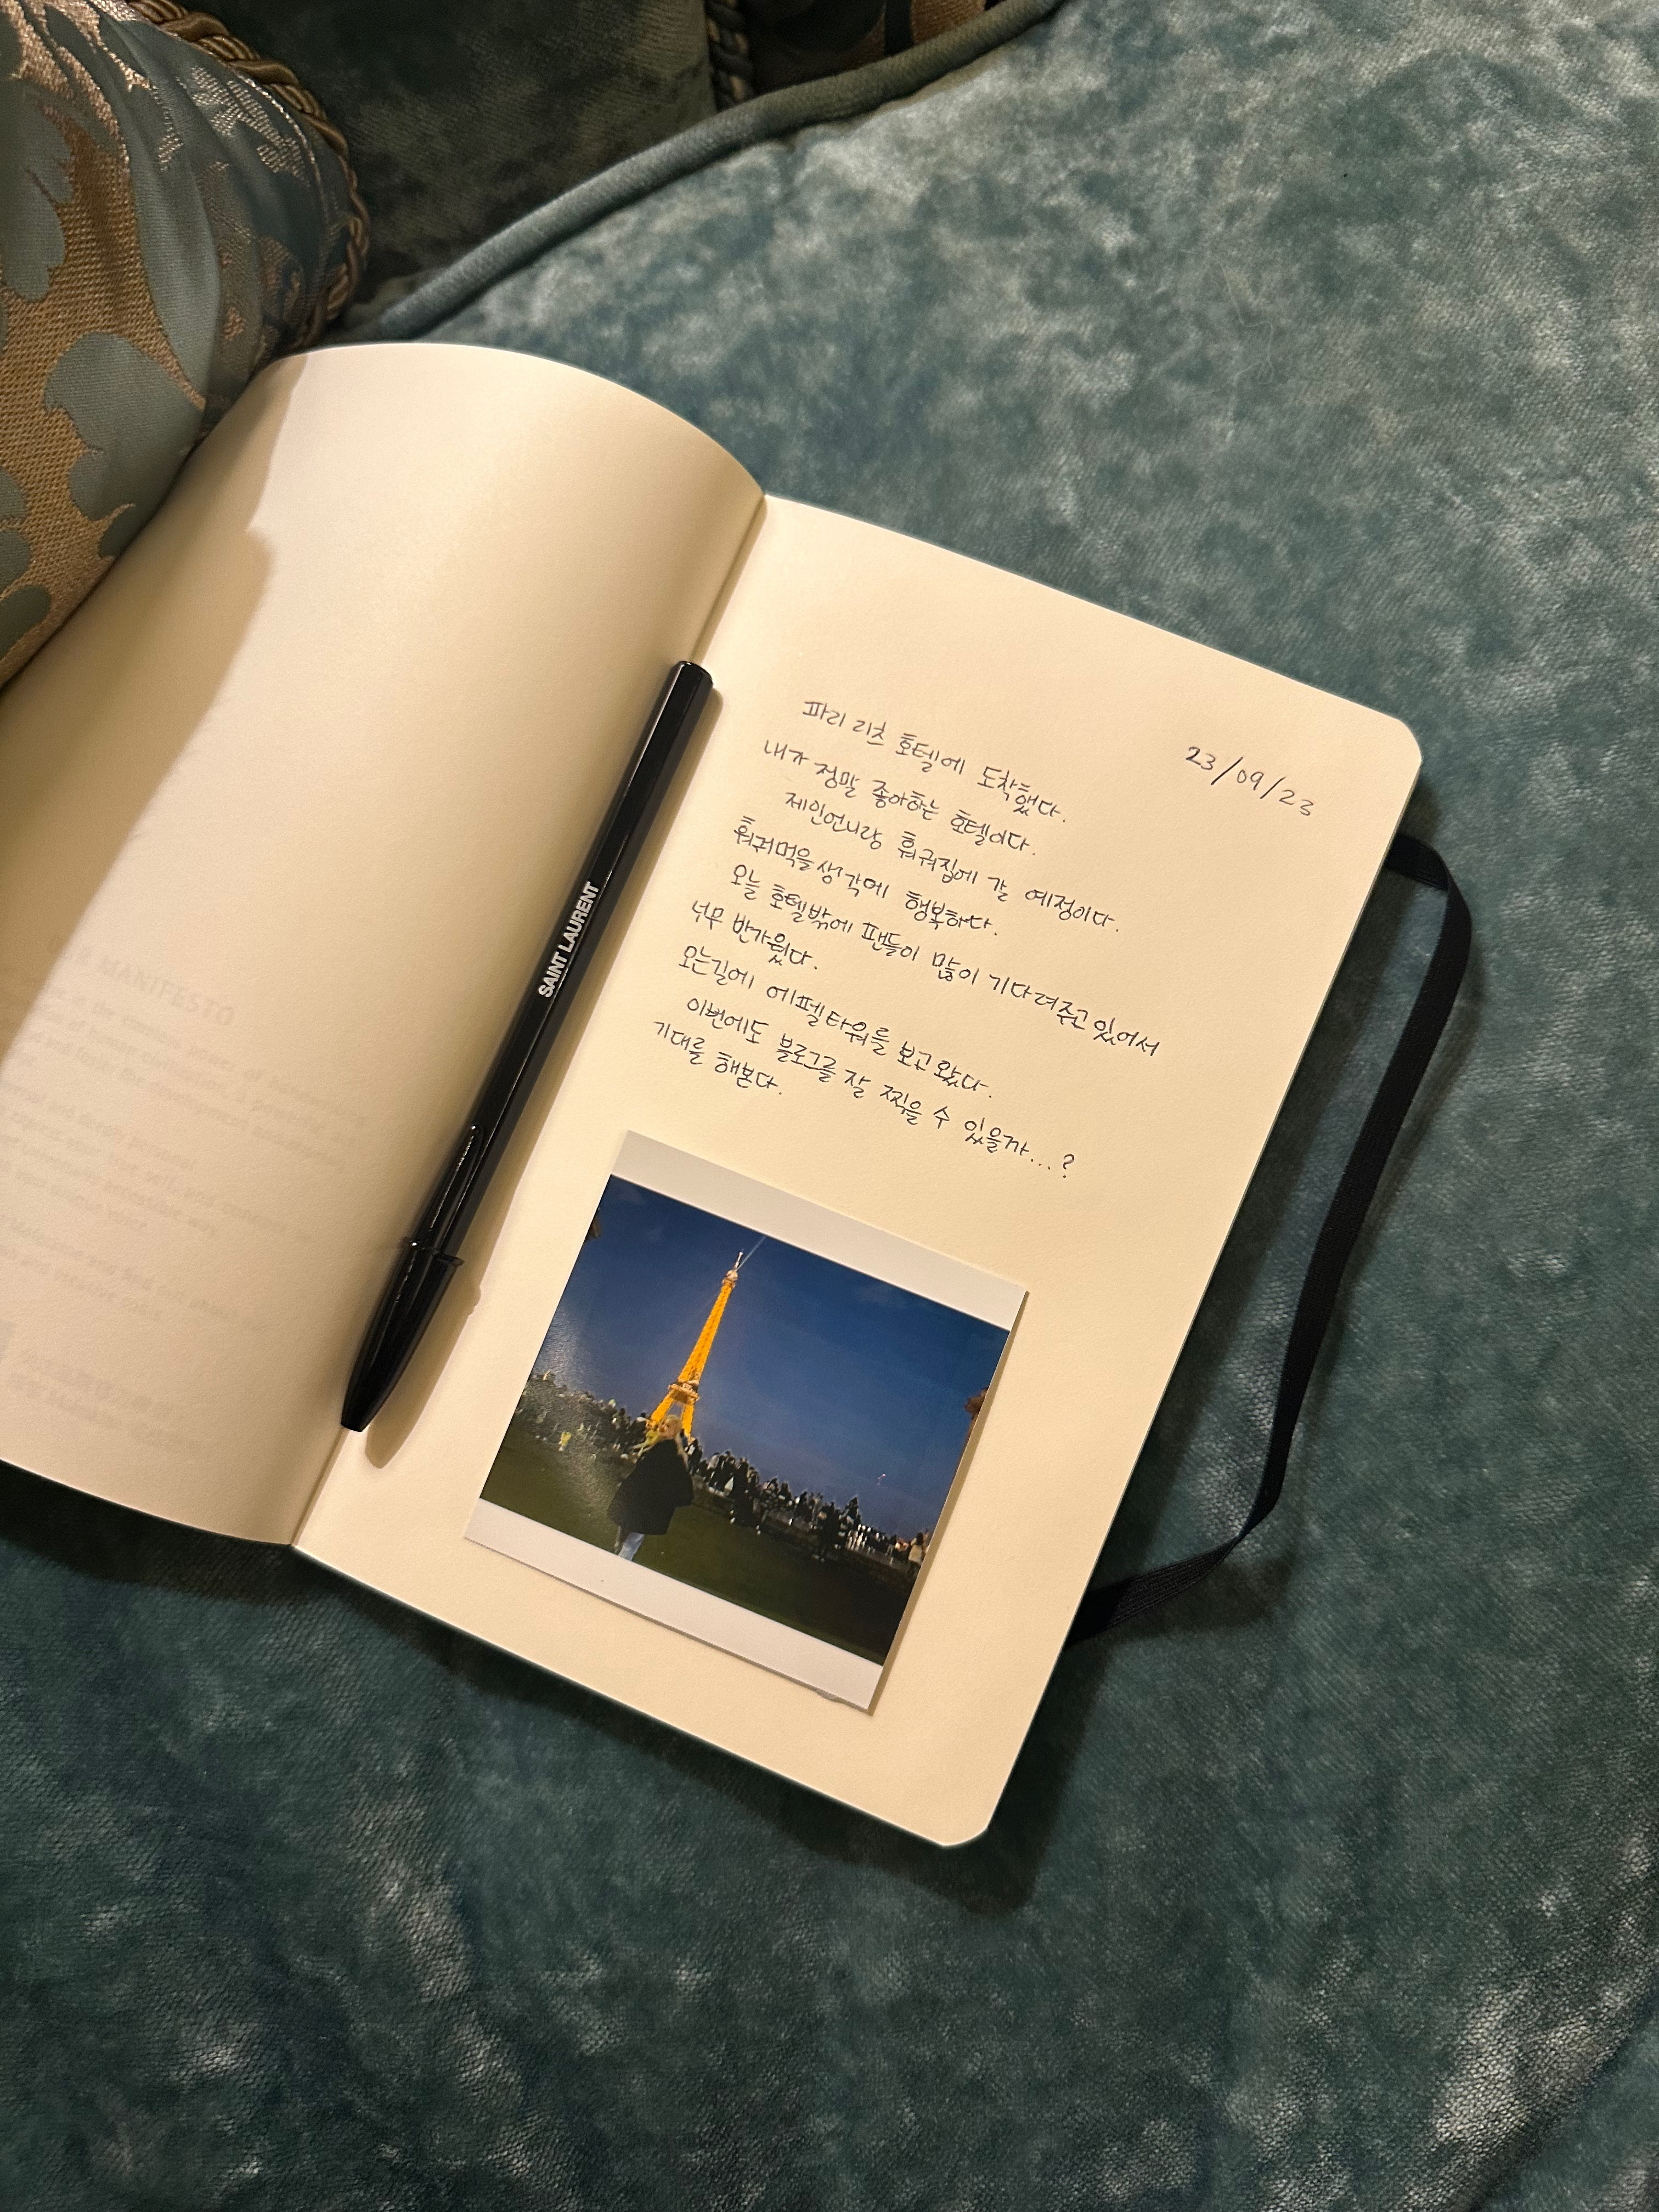 23/09/23
파리 리츠 호텔에 도착했다.
내가 정말 좋아하는 호텔이다.
제인언니랑 훠궈집에 갈 예정이다.
훠궈먹을생각에 행복하다.
오늘 호텔밖에 팬들이 많이 기다려주고있어서
너무 반가웠다.
오는길에 에펠타워를 보고왔다.
이번에도 블로그를 잘 찍을 수 있을까...?
기대를 해본다.
SAINT LAURENT
MANIFESTO